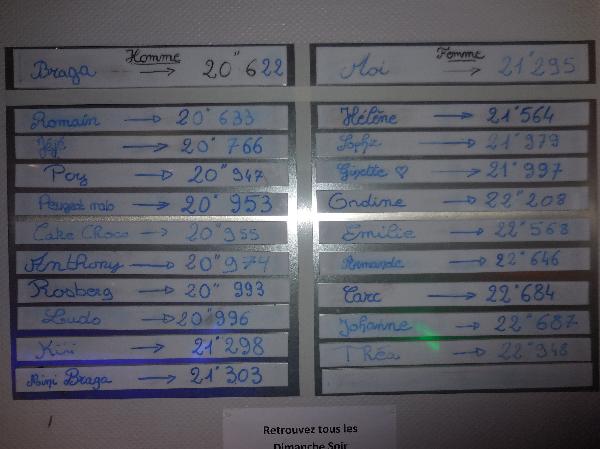 Homme
Braga → 20"622
Romain → 20"633
Jéjé → 20"766
Poy → 20"947
Peugeot mob → 20"953
Cake Choco → 20"955
Anthony → 20"974
Rosberg → 20"993
Ludo → 20"996
Kiki → 21"298
Mini Braga → 21"303
Femme
Moi → 21"295
Hélène → 21"564
Sophie → 21"979
Ginette ♡ → 21"997
Ondine → 22"208
Emilie → 22"568
Armanda → 22"646
Carc → 22"684
Johanne → 22"687
Théa → 22"948
Retrouvez tous les
Dimanche Soir